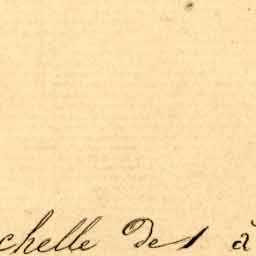 chelle De 1 à